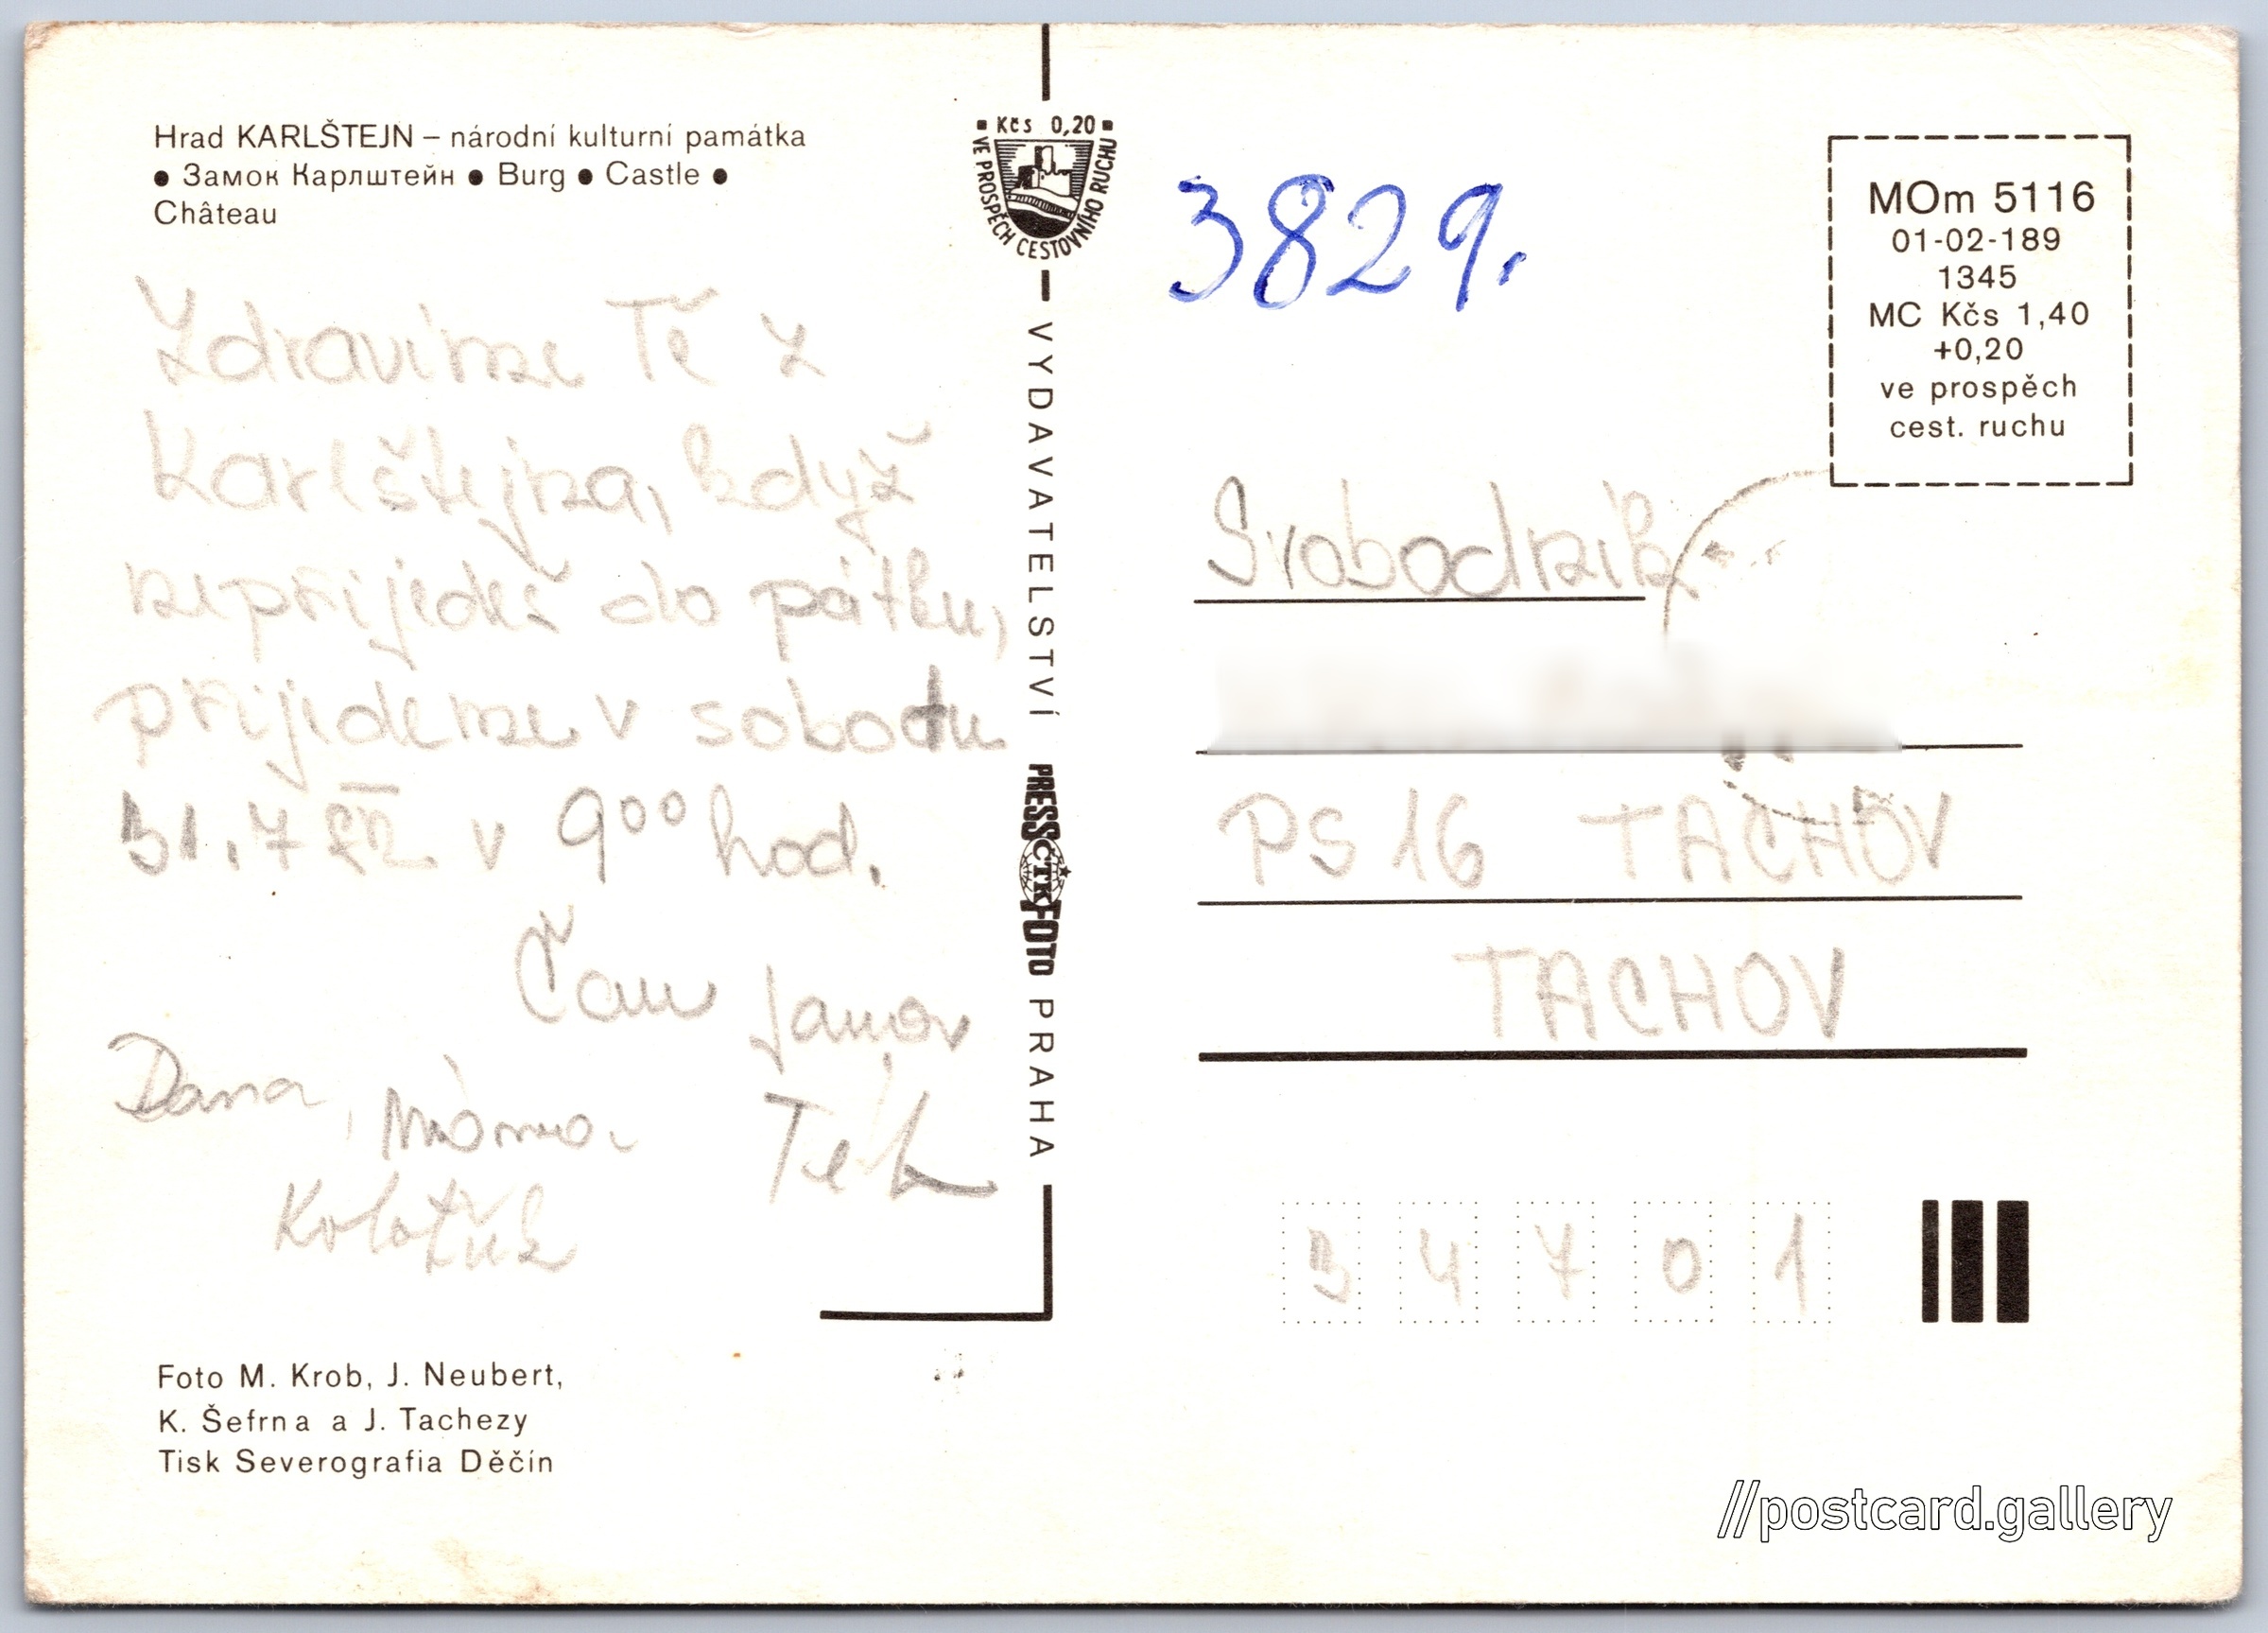 Hrad KARLŠTEJN – národní kulturní památka
● Замок Карлштейн ● Burg ● Castle ●
Château
Zdravíme Tě z
Karlštejna, když
nepřijedeš do pátku,
přijedeme v sobotu
31.7 v 9°° hod.
Dana, Máma
Foto M. Krob, J. Neubert,
K. Šefrna a J. Tachezy
Tisk Severografia Děčín
■ Kčs 0,20 ■
VE PROSPĚCH CESTOVNÍHO RUCHU
VYDAVATELSTVÍ PRESSČTKFOTO PRAHA
3829.
MOm 5116
01-02-189
1345
MC Kčs 1,40
+0,20
ve prospěch
cest. ruchu
Svobodník
PS 16 TACHOV
TACHOV
34701
//postcard.gallery